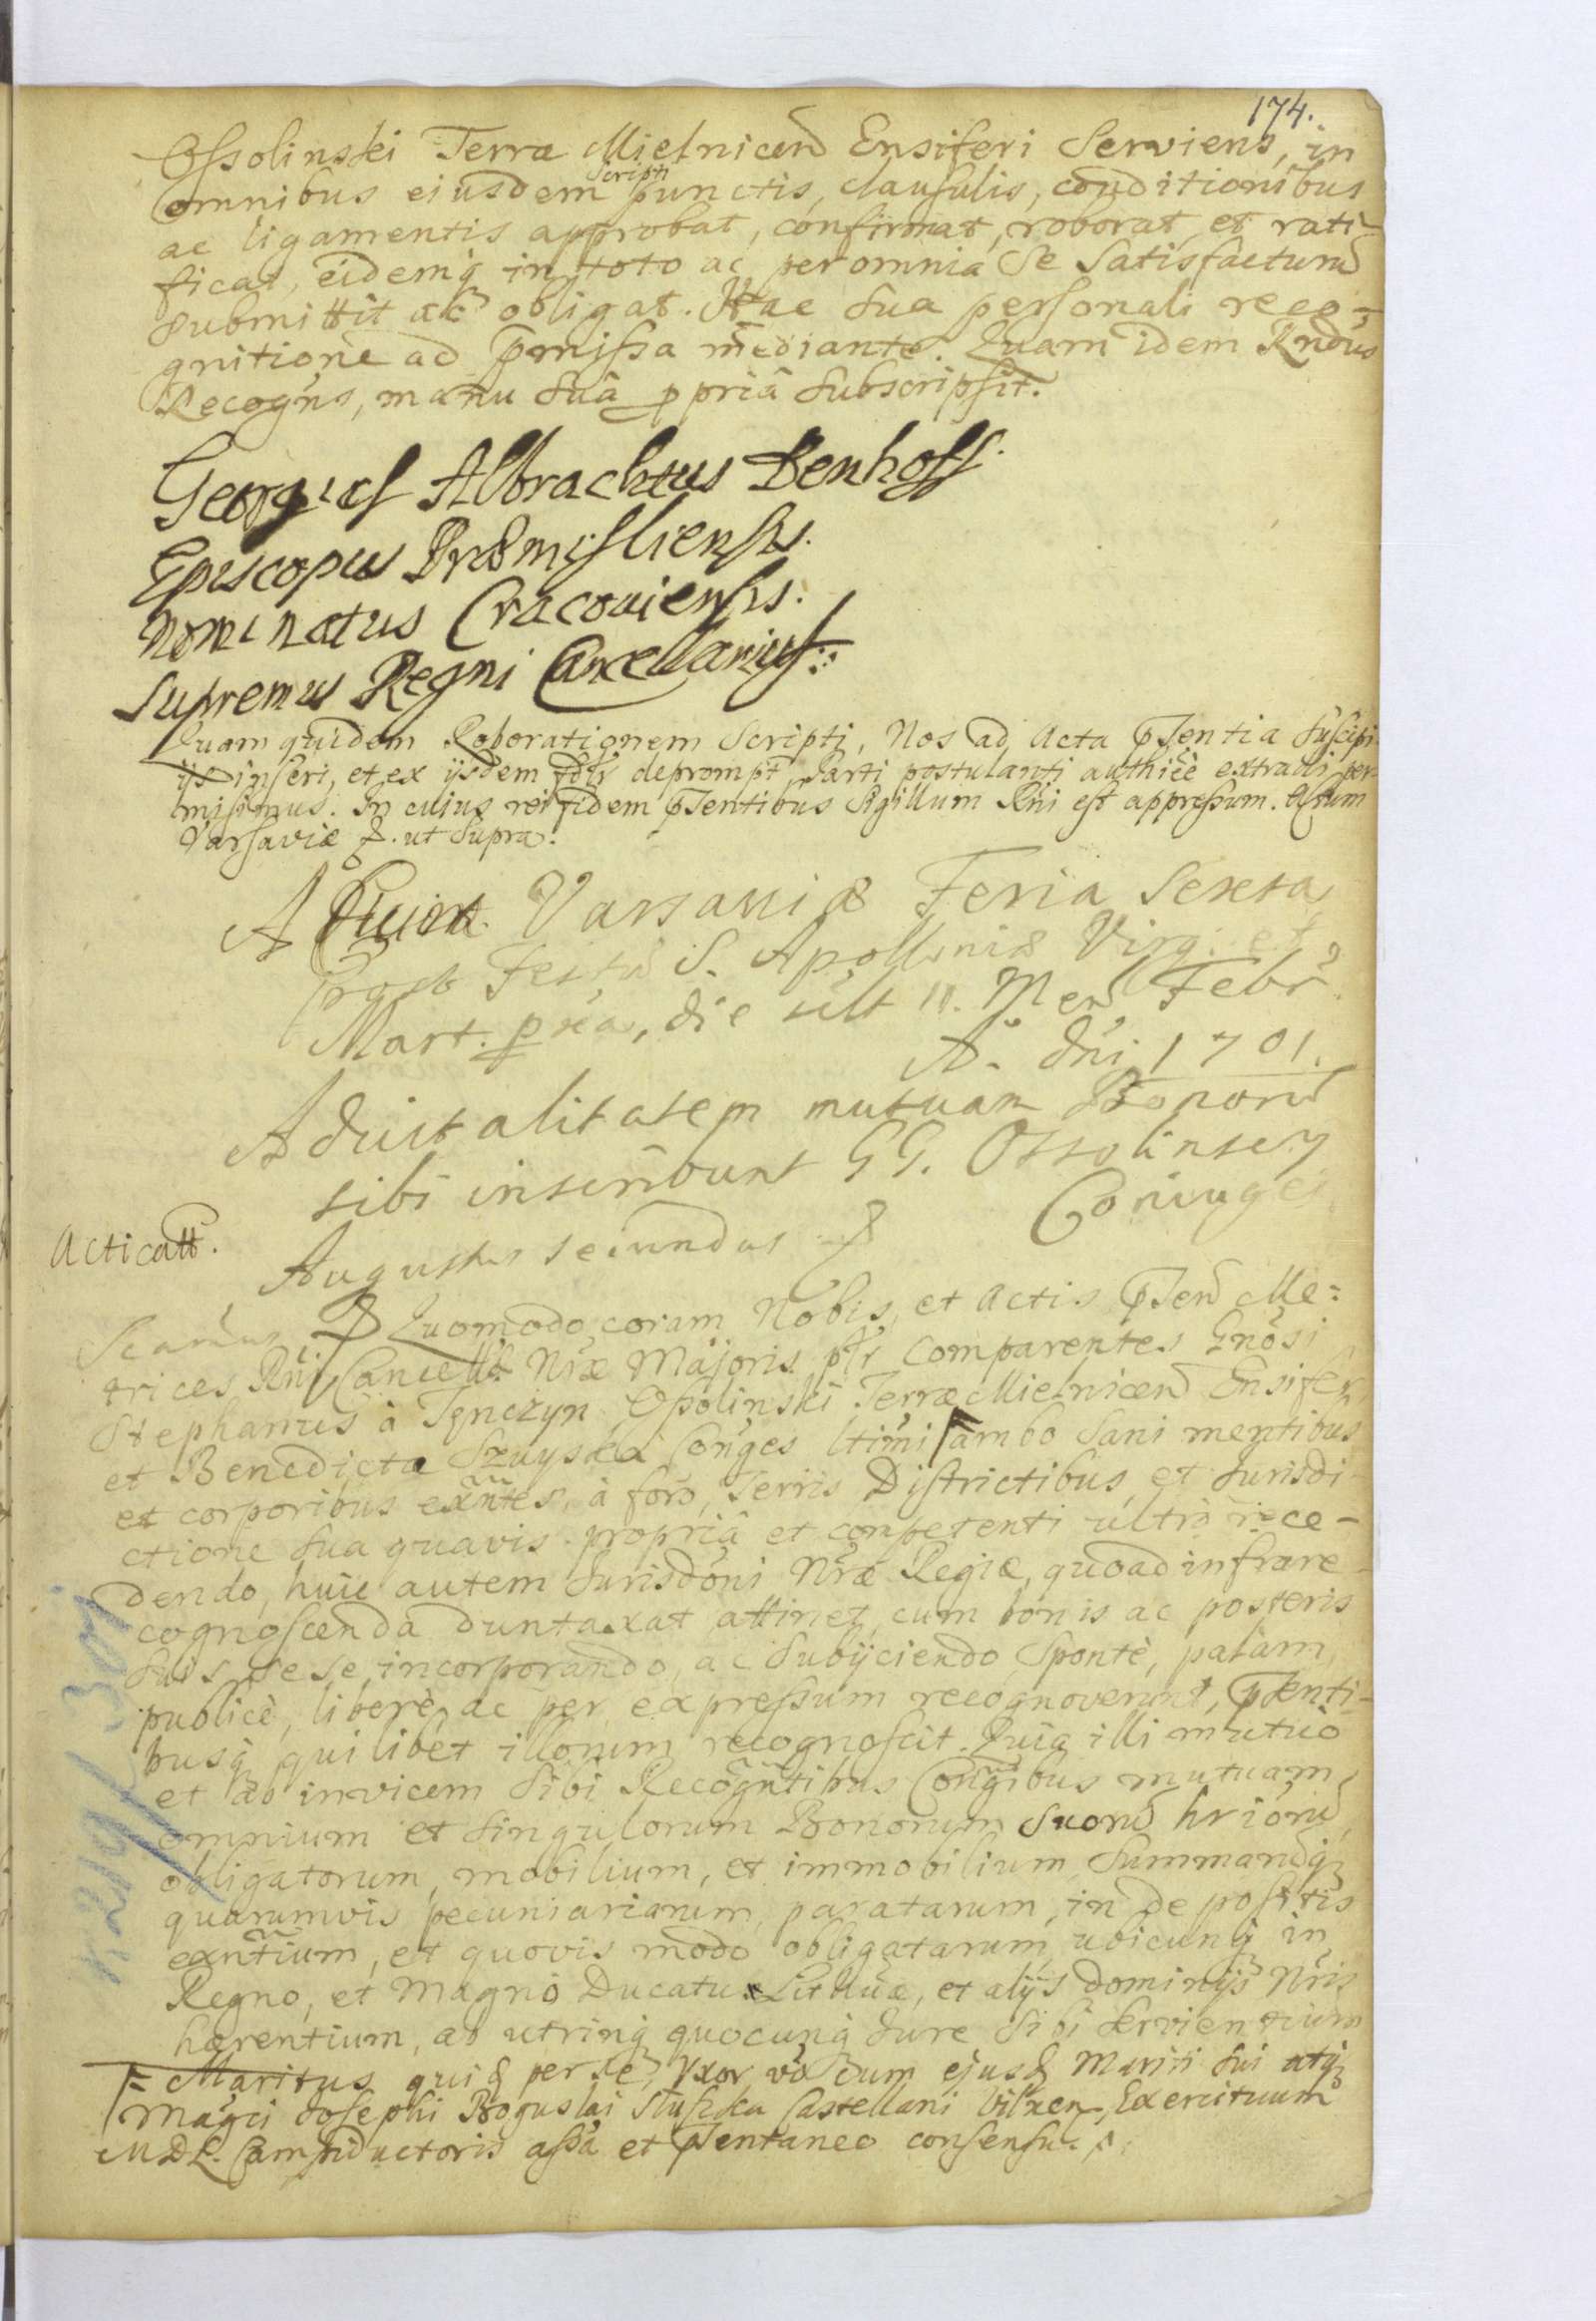 174.
Ossolinski Terræ Mielnicen Ensiferi Serviens, in
omnibus ejusdem Scripti punctis, clausulis, conditionibus
ac ligamentis approbat, confirmat, roborat et rati-
ficat, eidemq in toto ac per omnia Se Satisfacturu
submittit ac obligat. Hac Sua personali reco-
gnitione ad pmissa mediante. Quam idem Rndus
Recogns, manu Suâ ppriâ Subscripsit.
Georgius Albrachtus Denhoff.
Episcopus Præmisliensis.
Nominatus Cracouiensis.
Supremus Regni Cancellarius
Quam quidem Roborationem Scripti, Nos ad Acta pSentia Suscipi
ijs inseri, et ex ijsdem deprompt Parti postulanti authicè extradi per
misimus. In cujus rei fidem pSentibus Sigillum Rni est appressum. Actum
Varsaviæ &. ut Supra.
Varsaviæ Feria Sexta
Post Festu S. Apolloniæ Virg. et
Mart. pxia, die 11. Men Febr
A. dni 1701.
Aduitalitatem mutuam Bonoru
sibi inscribunt GG. Ossolinscy
Coniuges
Acticatt.
Augustus secundus &
Quomodo coram Nobis, et Actis pSen Me-
trices Rni Cancell Nræ Majoris psr Comparentes Gnosi
Stephanus à Tęnczyn Ossolinski Terræ Mielnicen Ensifer
et Benedicta Szuyska Conges ltimi ambo Sani mentibus
et corporibus exntes, à foro, Terris Districtibus, et Jurisdi-
ctione Sua quavis propriâ et competenti ultro rece-
dendo, huic autem Jurisdoni Nræ Regiæ, quoad infra re-
cognoscenda duntaxat attinet, cum bonis ac posteris
Suis Se Se incorporando, ac Subijciendo Spontè, palàm,
publicè, liberè ac per expressum recognoverunt, pSenti-
busq quilibet illorum recognoscit. Quia illi mutuò
et ab invicem Sibi Recogntibus Congibus mutuam
omnium et Singulorum Bonorum Suoru hrioru
obligatorum, mobilium, et immobilium Summaruq
quarumvis pecuniariarum, paratarum, in depositis
exntium, et quovis modo obligatarum, ubicunq in
Regno, et Magno Ducatu Lithuæ, et alijs dominijs Nris
hærentium, ac utrinq quocunq Jure Sibi Servientium
Maritus quid per se, Uxor vò cum ejusd Mariti Sui atq
Magci Josephi Boguslai Sluszka Castellani Vilnen, Exercituum
M D L. Campiductoris assâ et pSentaneo consensu.